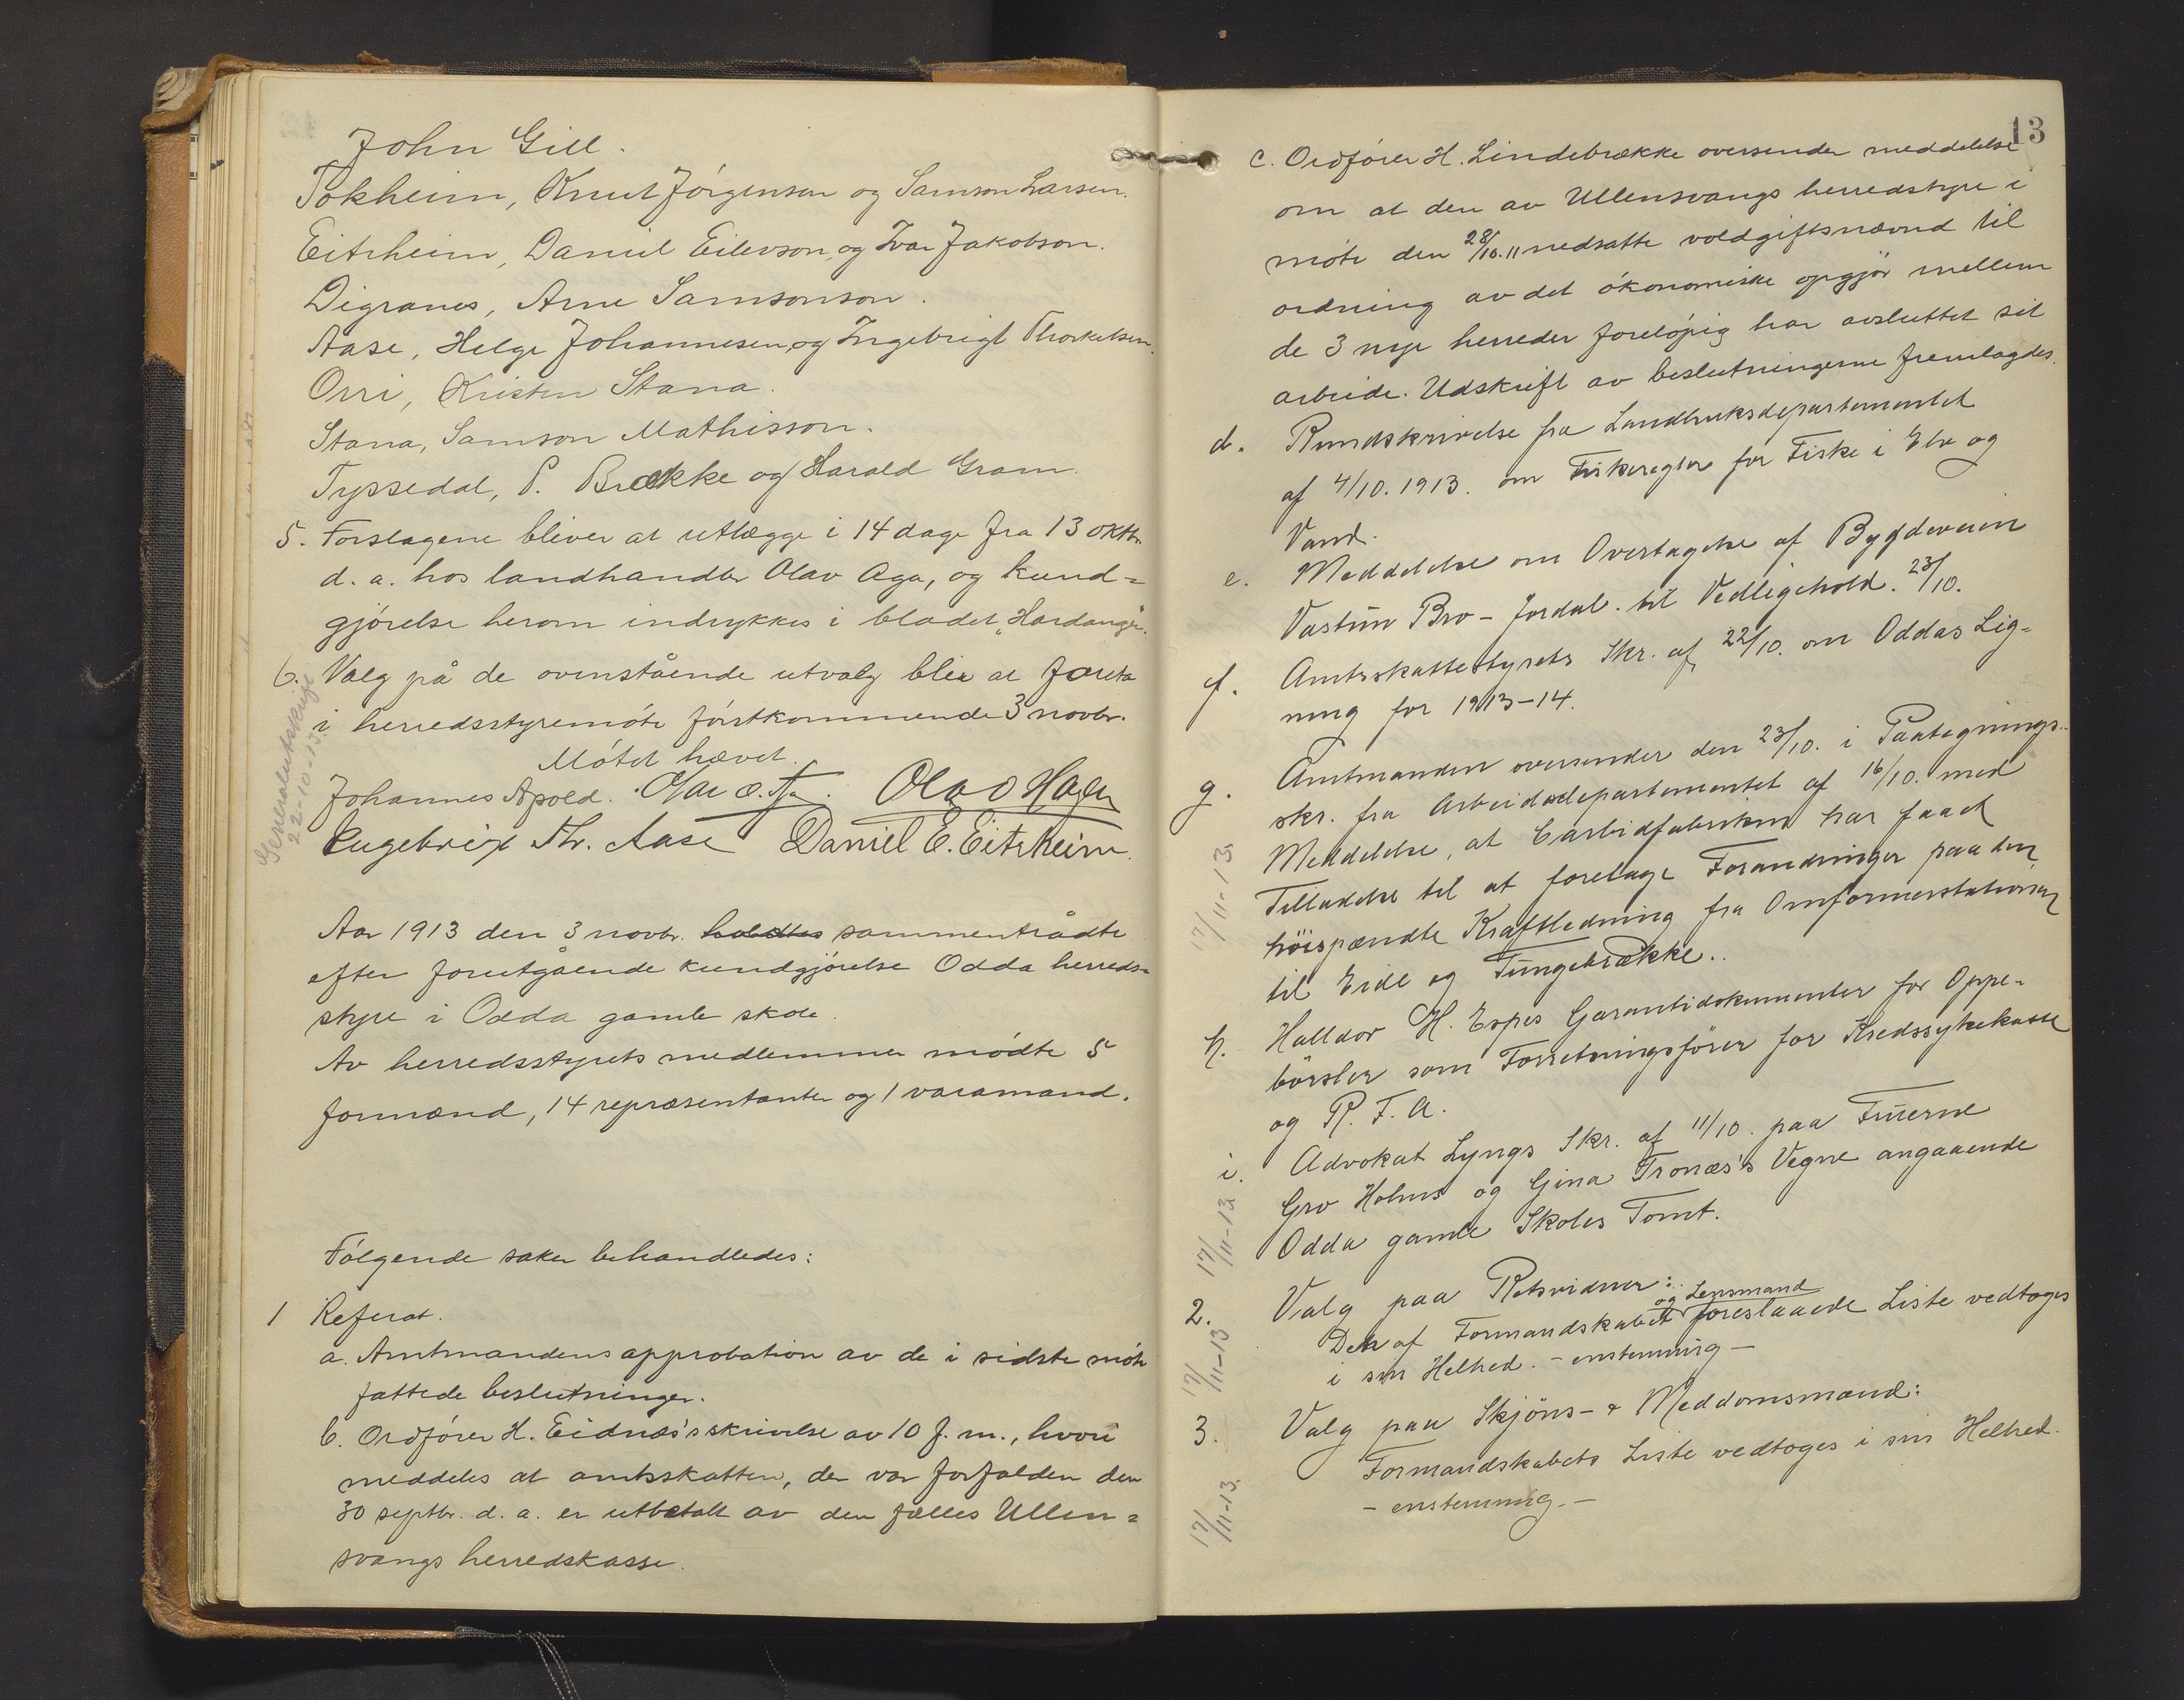 John Gill.
Tokheim, Knut Jörgenson og Samson Larsen.
Eitrheim, Daniel Eilevson, og Ivar Jakobson.
Digranes, Arne Samsonson.
Aase, Helge Johannesen, og Ingebrigt Thorkelsen.
Orri, Kristen Stana.
Stana, Samson Mathisson.
Tyssedal, P. Brække og Harald Gram.
5. Forslagene bliver at utlægge i 14 dage fra 13 oktbr.
d. a. hos landhandler Olav Aga, og kund-
gjörelse herom indrykkes i bladet „Hardanger“.
6. Valg på de ovenstående utvalg blir at foreta
i herredsstyremöte förstkommende 3 novbr.
Mötet hævet.
Generalutskrift
22-10-13.
Johannes Apold. Olav O. Aga. Olav O Hagen
Engebrigt Th. Aase Daniel E. Eitrheim.
Aar 1913 den 3 novbr. holdtes sammentrådte
efter forutgående kundgjörelse Odda herreds-
styre i Odda gamle skole.
Av herredsstyrets medlemmer mödte 5
formænd, 14 repræsentanter og 1 varamand.
Fölgende saker behandledes:
1 Referat.
a. Amtmandens approbation av de i sidste möte
fattede beslutninger.
b. Ordförer H. Eidnæs's skrivelse av 10 f. m., hvori
meddeles at amtsskatten, der var forfalden den
30 septbr. d. a. er utbetalt av den fælles Ullen-
svangs herredskasse.
13
c. Ordförer H. Lindebrække oversender meddelelse
om at den av Ullensvangs herredstyre i
möte den 28/10. 11 nedsatte voldgiftsnævnd til
ordning av det ökonomiske opgjör mellem
de 3 nye herreder forelöpig har avsluttet sit
arbeide. Udskrift av beslutningerne fremlagdes.
d. Rundskrivelse fra Landbruksdepartementet
af 4/10. 1913. om Fiskeregler for Fiske i Elv og
Vand.
e. Meddelelse om Overtagelse af Bygdeveien
Vastun Bro - Jordal. til Vedligehold. 23/10.
f. Amtsskattestyrets Skr. af 22/10. om Oddas Lig-
ning for 1913-14.
g. Amtmanden oversender den 23/10. i Paategnings-
skr. fra Arbeidsdepartementet af 16/10. med
Meddelelse, at Carbidfabriken har faaet
Tilladelse til at foretage Forandringer paa den
höispændte Kraftledning fra Omformerstationen
til Eide og Tungebrække..
17/11-13
h. Halldor H. Espes Garantidokumenter for Oppe-
börsler som Forretningsförer for Kredssykekasse
og R. F. A.
i. Advokat Lyngs Skr. af 11/10. paa Fruerne
Gro Holms og Gina Tronæs's Vegne angaaende
Odda gamle Skoles Tomt.
17/11-13
2. Valg paa Retsvidner:
og Lensmand
Den af Formandskabet foreslaaede Liste vedtoges
i sin Helhed. - enstemmig -
17/11-13
3. Valg paa Skjöns- & Meddomsmænd:
Formandskabets Liste vedtoges i sin Helhed.
- enstemmig. -
17/11-13.